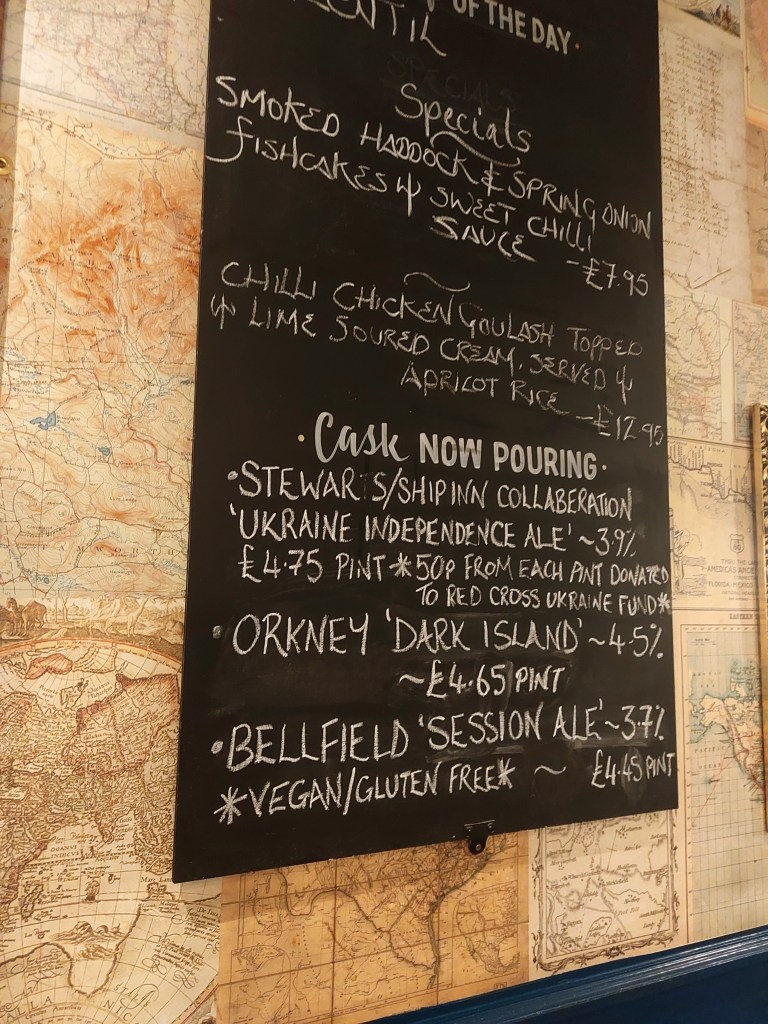 OF THE DAY.
LENTIL
SPECIALS
Specials
SMOKED HADDOCK & SPRING ONION
FISHCAKES W SWEET CHILLI
SAUCE -£7.95
CHILLI CHICKEN GOULASH TOPPED
W LIME SOURED CREAM. SERVED W
APRICOT RICE -£12.95
· Cask NOW POURING ·
• STEWARTS/SHIP INN COLLABERATION
'UKRAINE INDEPENDENCE ALE' ~ 3.9%
£4.75 PINT * 50p FROM EACH PINT DONATED
TO RED CROSS UKRAINE FUND *
• ORKNEY 'DARK ISLAND' ~ 4.5%
~ £4.65 PINT
• BELLFIELD 'SESSION ALE' ~ 3.7%
* VEGAN/GLUTEN FREE * ~ £4.45 PINT